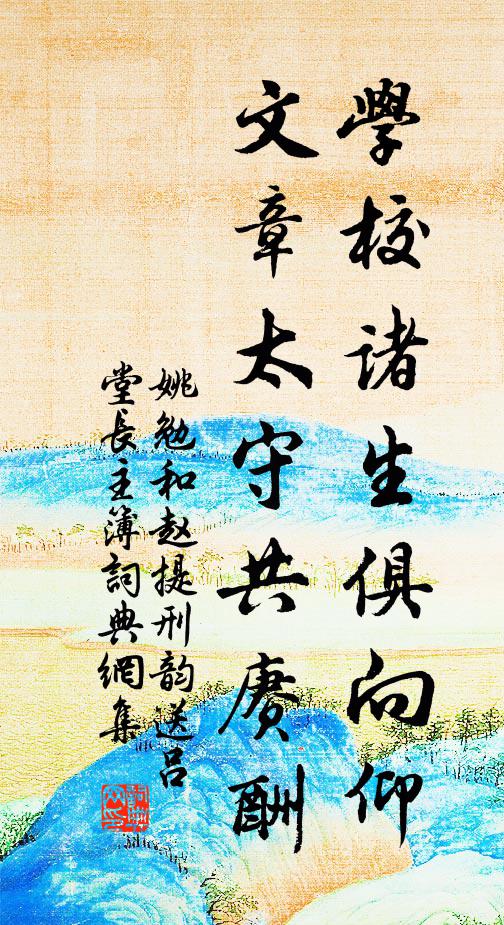 學校诸生俱向仰
文章太守共赓酬
姚勉和赵提刑韵送吕
堂长主簿詞典網集